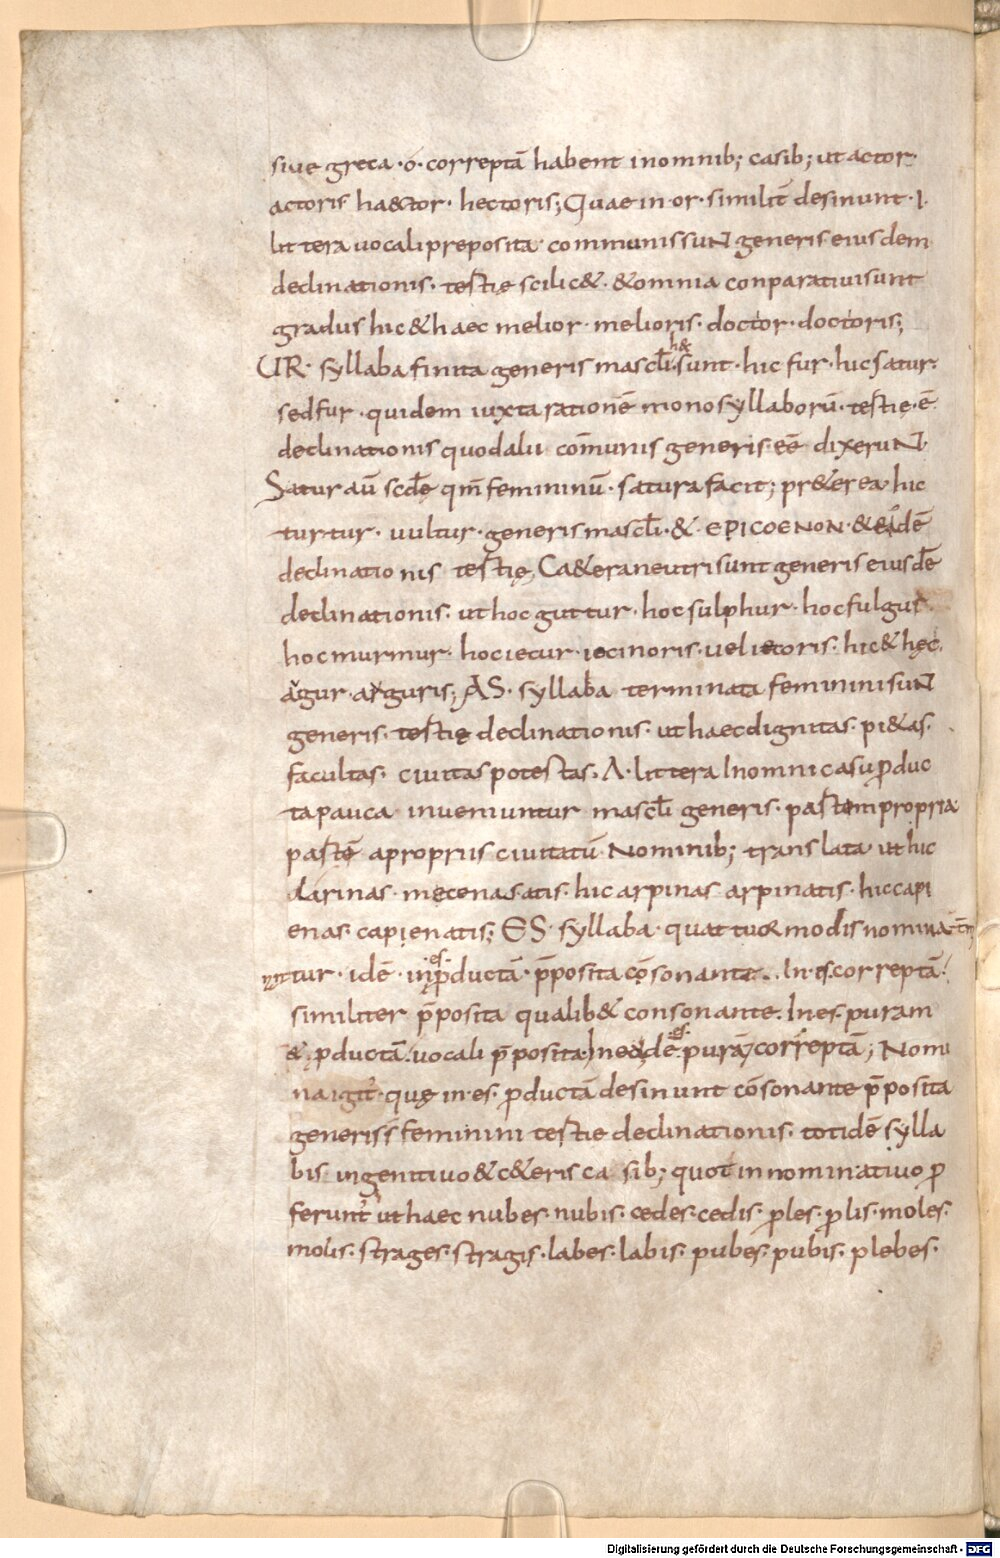 siue greca ·o· correptā habent inomnib; casib; ut actor·
actoris ha&tor· hectoris; Quae in·or· similit̄ desinunt· I·
littera uocali preposita· communis sunt generis eiusdem
declinationis· testię scilic&· &omnia conparatiui sunt
gradus hic & haec melior· melioris· doctor· doctoris;
UR· syllaba finita generis mascl̄i· h& sunt· hic fur· hic satur·
sed fur· quidem iuxta rationē monosyllaborū· testię·ē·
declinationis quod alii cōmunis generis·eē· dixerunt·
Satur aū scd̄ę qm̄ femininū· satura facit; pr&erea hic
turtur· uultur· generis mascl̄i· & EPICOENON· & eidē
declinationis testię, Ca&era neutri sunt generis eiusdē
declinationis· ut hoc guttur· hoc sulphur· hoc fulgur·
hoc murmur· hoc iecur· iocinoris· uel iecoris· hic & hęc·
augur· auguris; AS· syllaba terminata feminini sunt
generis· testię declinationis· ut haec dignitas· pi&as·
facultas· ciuitas potestas· A· littera In omni casu produc
ta pauca inueniuntur mascl̄i generis· partem propria
partē a propriis ciuitatū Nominib; translata ut hic
larinas· męcenas·atis· hic arpinas arpinatis· hic capi
enas· capienatis; ES· syllaba· quattuor modis nomina
ntur· idē· in·es· productā· p̄posita cōsonante·. In·es· correptā·
similiter p̄posita qualib& consonante. In es· puram
& productā· uocali p̄posita· In eadē·es· purā correptā; Nomi
na igit̄· quę in·es· productā desinunt cōsonante p̄posita
generis feminini testie declinationis· totidē sylla
bis in genitiuo & c&eris casib; quot in nominatiuo pro
ferunt̄ ut haec nubes· nubis· cedes· cedis· proles· prolis· moles·
molis· strages· stragis· labes· labis· pubes· pubis· plebes·
Digitalisierung gefördert durch die Deutsche Forschungsgemeinschaft - DFG